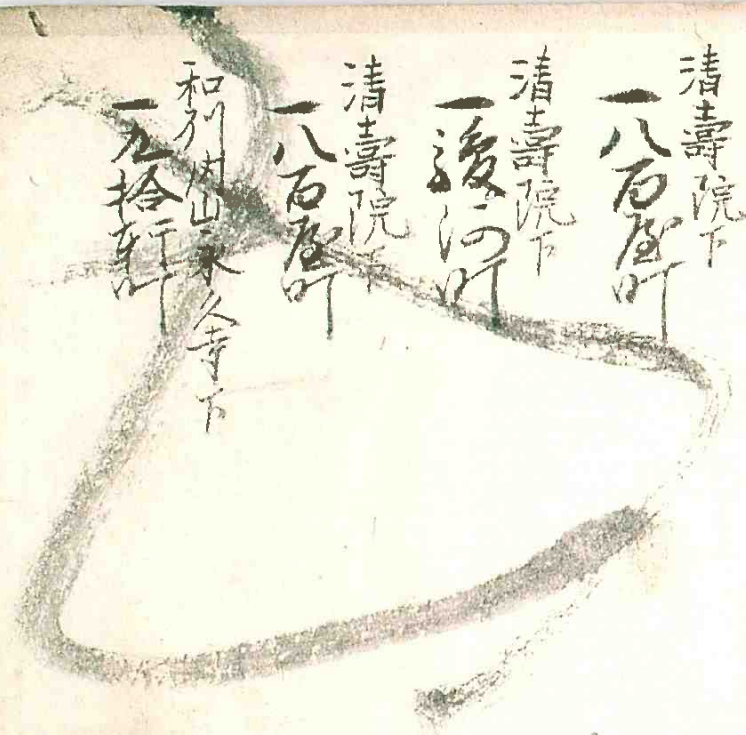 清壽院下
一八百屋町
清壽院下
一駿河町
清壽院下
一八百屋町
和州内山永久寺下
一九拾軒町